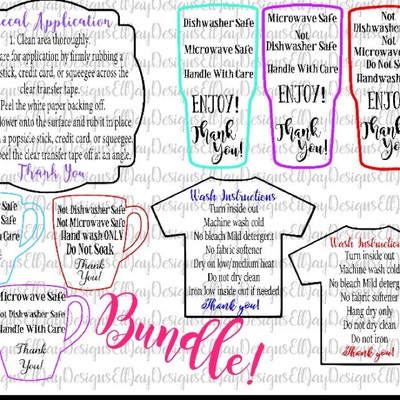 Decal Application
1. Clean area thoroughly.
for application by firmly rubbing a
stick, credit card, or squeegee across the
clear transfer tape.
Peel the white paper backing off.
flower onto the surface and rub in place
a popsicle stick, credit card, or squeegee.
peel the clear transfer tape off at an angle.
Thank You
Dishwasher Safe
Microwave Safe
Handle With Care
ENJOY!
Thank
You!
Microwave Safe
Not
Dishwasher Safe
Handle With Care
ENJOY!
Thank
You!
Not
Dishwasher
Not
Microwave
Do Not So
Handwash
ENJOY
Than
You
Safe
Safe
h Care
Not Dishwasher Safe
Not Microwave Safe
Hand wash ONLY
Do Not Soak
Thank
You!
Microwave Safe
Not Dishwasher Safe
Handle With Care
Thank
You!
Wash Instructions
Turn inside out
Machine wash cold
No bleach Mild detergent
No fabric softener
Dry on low/medium heat
Do not dry clean
Iron low inside out if needed
Thank you!
Wash Instructions
Turn inside out
Machine wash cold
No bleach Mild detergen
No fabric softener
Hang dry only
Do not dry clean
Do not iron
Thank you!
Bundle!
EllJayDesigns